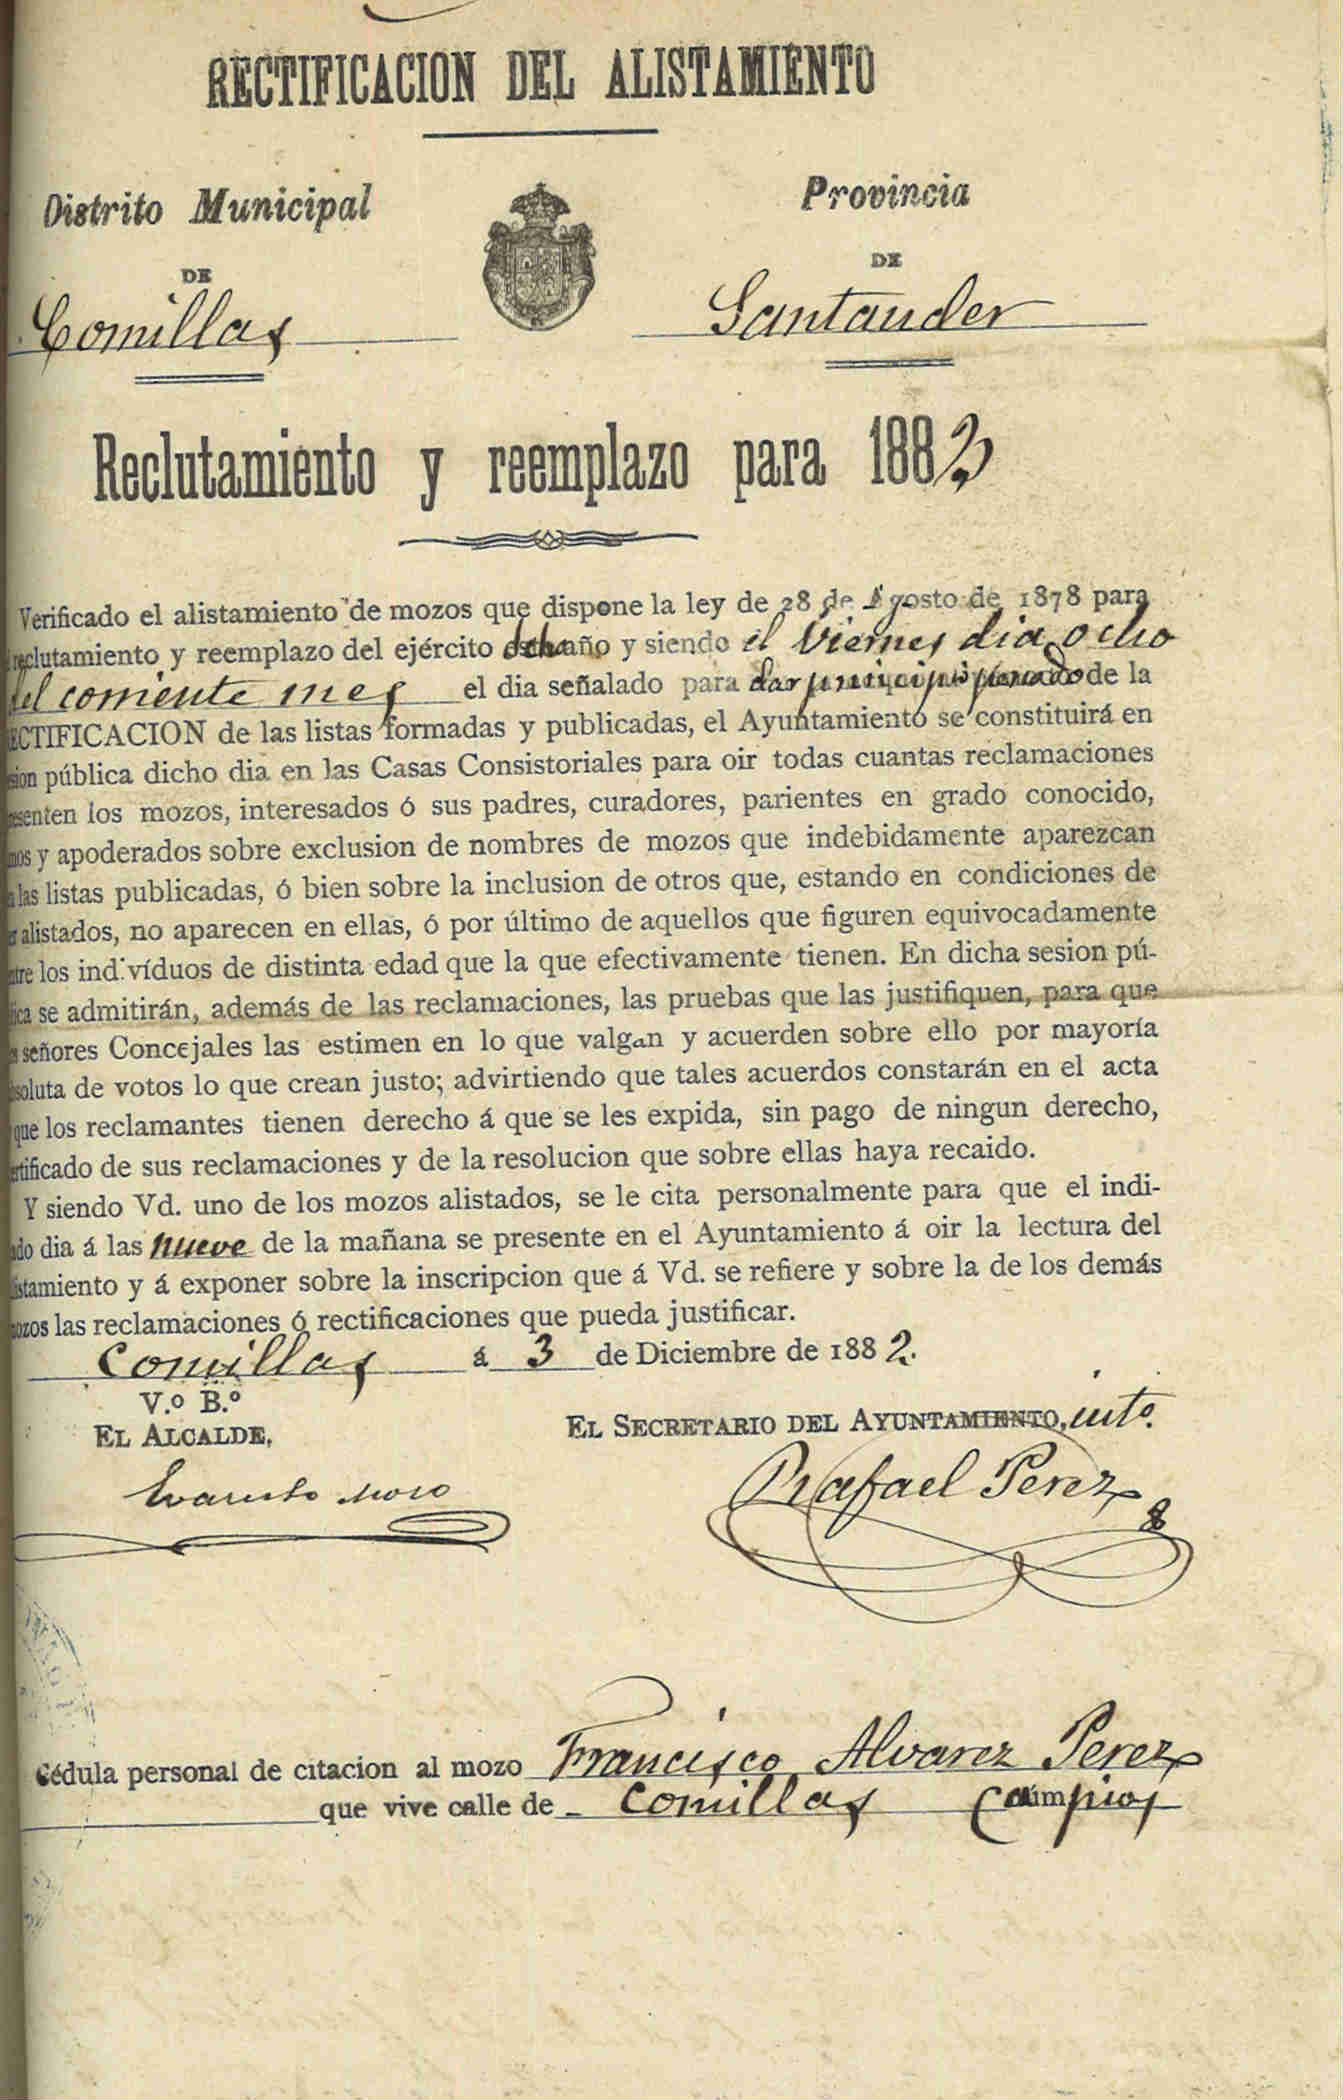 RECTIFICACION DEL ALISTAMIENTO
Distrito Municipal
DE
Comillas
Provincia
DE
Santander
Reclutamiento y reemplazo para 1883
Verificado el alistamiento de mozos que dispone la ley de 28 de Agosto de 1878 para
reclutamiento y reemplazo del ejército dicho año y siendo el Viernes dia ocho
del corriente mes el dia señalado para dar principio de la
RECTIFICACION de las listas formadas y publicadas, el Ayuntamiento se constituirá en
sion pública dicho dia en las Casas Consistoriales para oir todas cuantas reclamaciones
esenten los mozos, interesados ó sus padres, curadores, parientes en grado conocido,
mos y apoderados sobre exclusion de nombres de mozos que indebidamente aparezcan
las listas publicadas, ó bien sobre la inclusion de otros que, estando en condiciones de
er alistados, no aparecen en ellas, ó por último de aquellos que figuren equivocadamente
ntre los individuos de distinta edad que la que efectivamente tienen. En dicha sesion pú-
lica se admitirán, además de las reclamaciones, las pruebas que las justifiquen, para que
s señores Concejales las estimen en lo que valgan y acuerden sobre ello por mayoría
bsoluta de votos lo que crean justo; advirtiendo que tales acuerdos constarán en el acta
que los reclamantes tienen derecho á que se les expida, sin pago de ningun derecho,
ertificado de sus reclamaciones y de la resolucion que sobre ellas haya recaido.
Y siendo Vd. uno de los mozos alistados, se le cita personalmente para que el indi-
ado dia á las nueve de la mañana se presente en el Ayuntamiento á oir la lectura del
istamiento y á exponer sobre la inscripcion que á Vd. se refiere y sobre la de los demás
mozos las reclamaciones ó rectificaciones que pueda justificar.
Comillas á 3 de Diciembre de 1882.
V.º B.º
EL ALCALDE,
EL SECRETARIO DEL AYUNTAMIENTO, into.
Evaristo Moro
Rafael Perez
Cédula personal de citacion al mozo Francisco Alvarez Perez
que vive calle de Comillas Campios